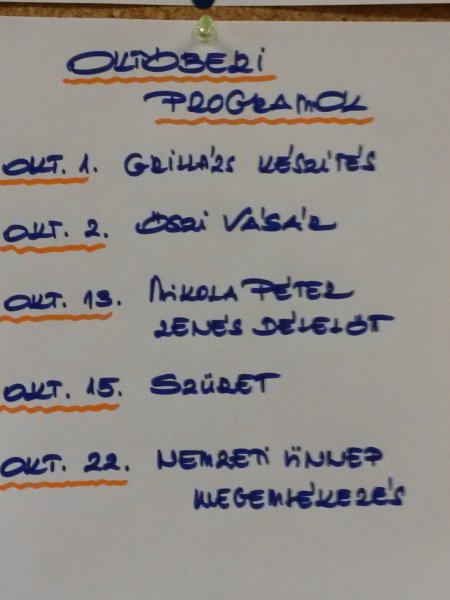 OKTÓBERI
PROGRAMOK
OKT. 1. GRILLÁZS KÉSZÍTÉS
OKT. 2. ŐSZI VÁSÁR
OKT. 13. NIKOLA PÉTER
ZENÉS DÉLELŐT
OKT. 15. SZÜRET
OKT. 22. NEMZETI ÜNNEP
MEGEMLÉKEZÉS